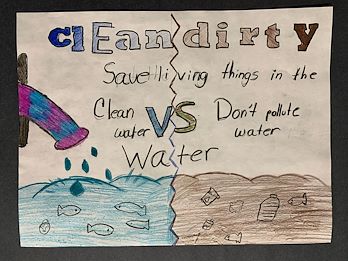 clean dirty
Save living things in the
Clean VS Don't pollute
water water
Water